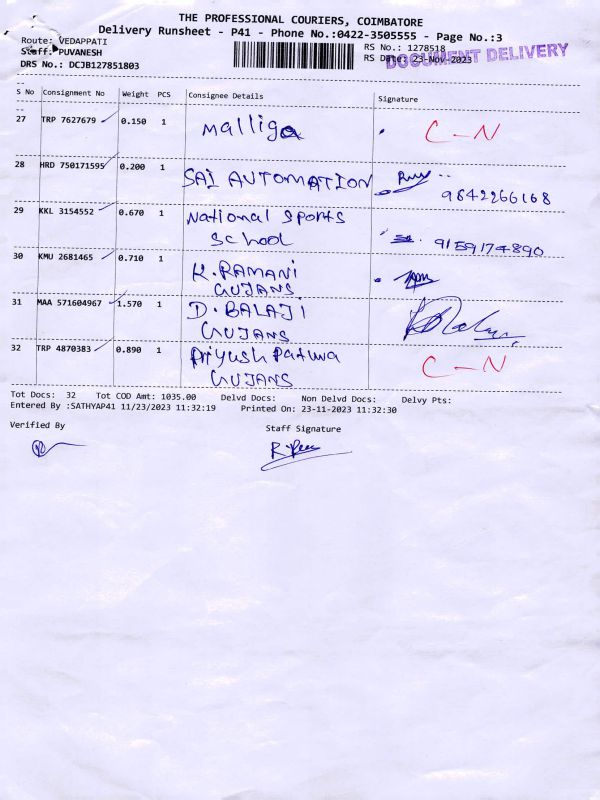 THE PROFESSIONAL COURIERS, COIMBATORE
Delivery Runsheet - P41 - Phone No.:0422-3505555 - Page No.:3
Route: VEDAPPATI
RS No.: 1278518
Staff: PUVANESH
RS Date: 23-Nov-2023
DOCUMENT DELIVERY
DRS No.: DCJB127851803
S No Consignment No Weight PCS Consignee Details Signature
27 TRP 7627679 0.150 1 Malliga C-N
28 HRD 750171595 0.200 1 SAI AUTOMATION
9842266168
29 KKL 3154552 0.670 1 National Sports
School 9159174890
30 KMU 2681465 0.710 1 K. RAMANI
GUJANS
31 MAA 571604967 1.570 1 D. BALAJI
GUJANS
32 TRP 4870383 0.890 1 Priyush Patwa C-N
GUJANS
Tot Docs: 32 Tot COD Amt: 1035.00 Delvd Docs: Non Delvd Docs: Delvy Pts:
Entered By :SATHYAP41 11/23/2023 11:32:19 Printed On: 23-11-2023 11:32:30
Verified By Staff Signature